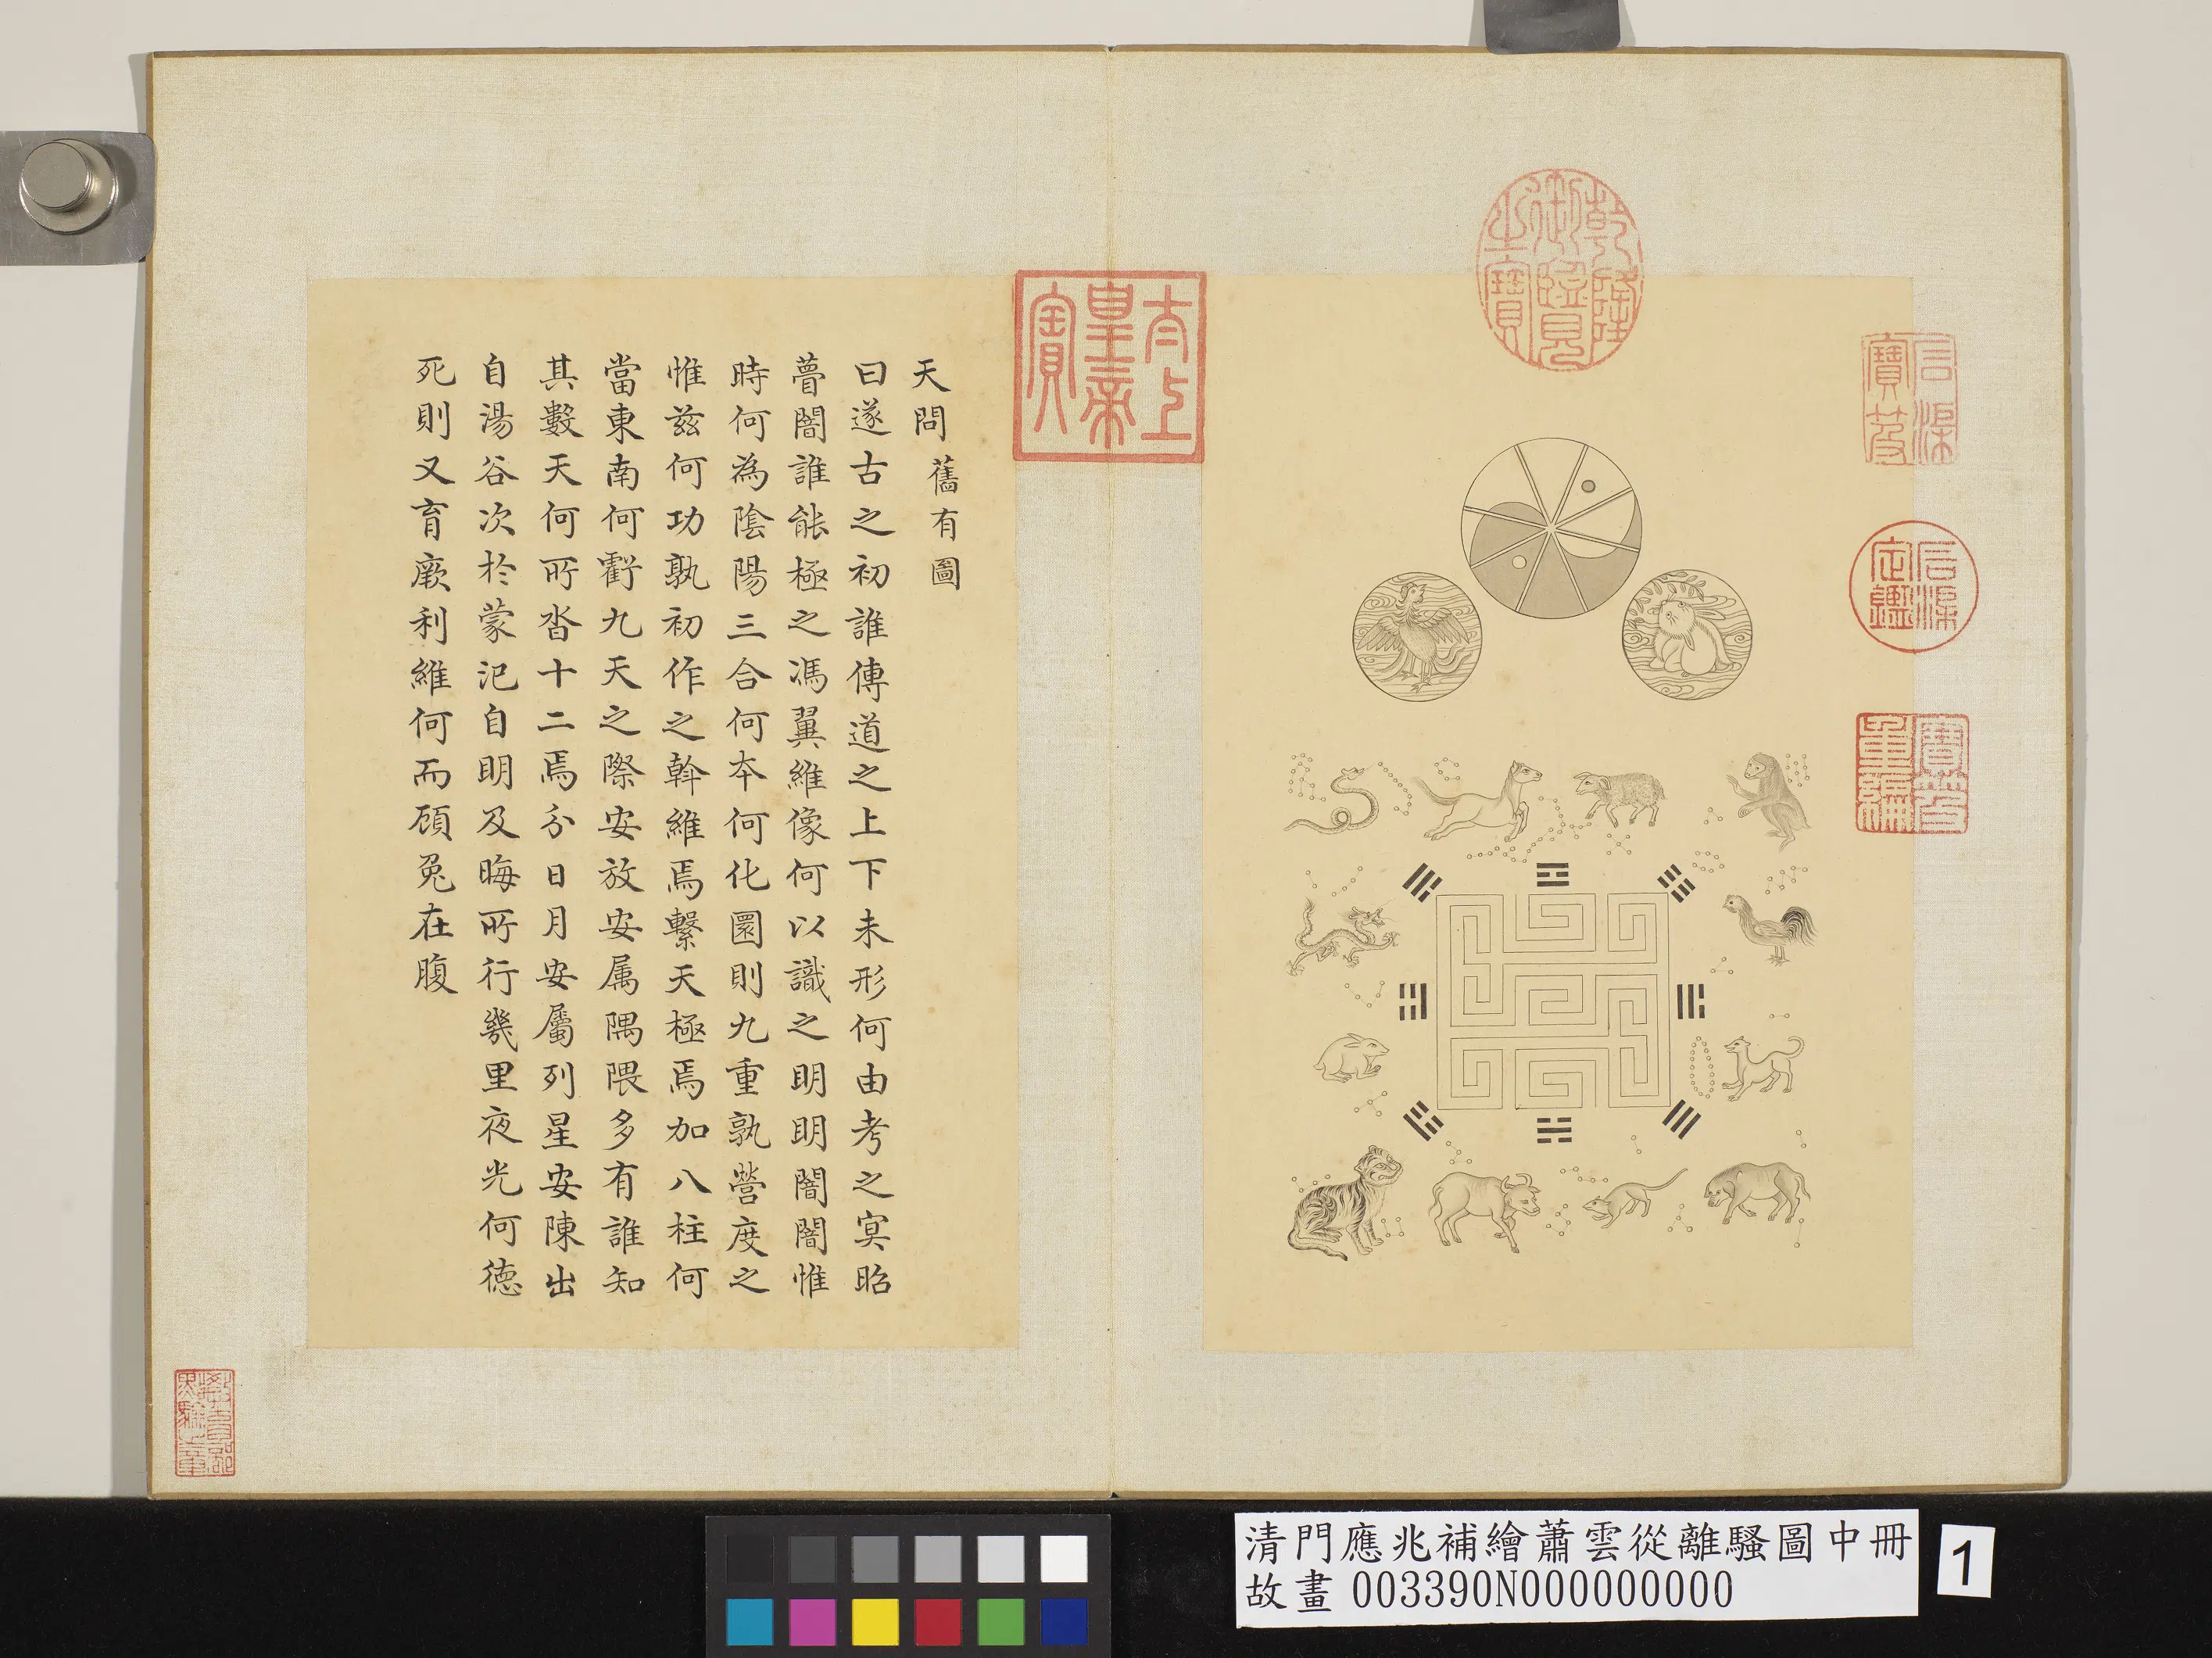 乾隆御覽之寶
石渠寶笈
石渠定鑑
寶笈重編
太上皇帝寶
天問 舊有圖
曰遂古之初誰傳道之上下未形何由考之冥昭
瞢闇誰能極之馮翼維像何以識之明明闇闇惟
時何為陰陽三合何本何化圜則九重孰營度之
惟茲何功孰初作之斡維焉繫天極焉加八柱何
當東南何虧九天之際安放安属隅隈多有誰知
其數天何所沓十二焉分日月安屬列星安陳出
自湯谷次於蒙汜自明及晦所行幾里夜光何德
死則又育厥利維何而顧兔在腹
教育部點驗之章
清門應兆補繪蕭雲從離騷圖中冊
故畫 003390N000000000
1